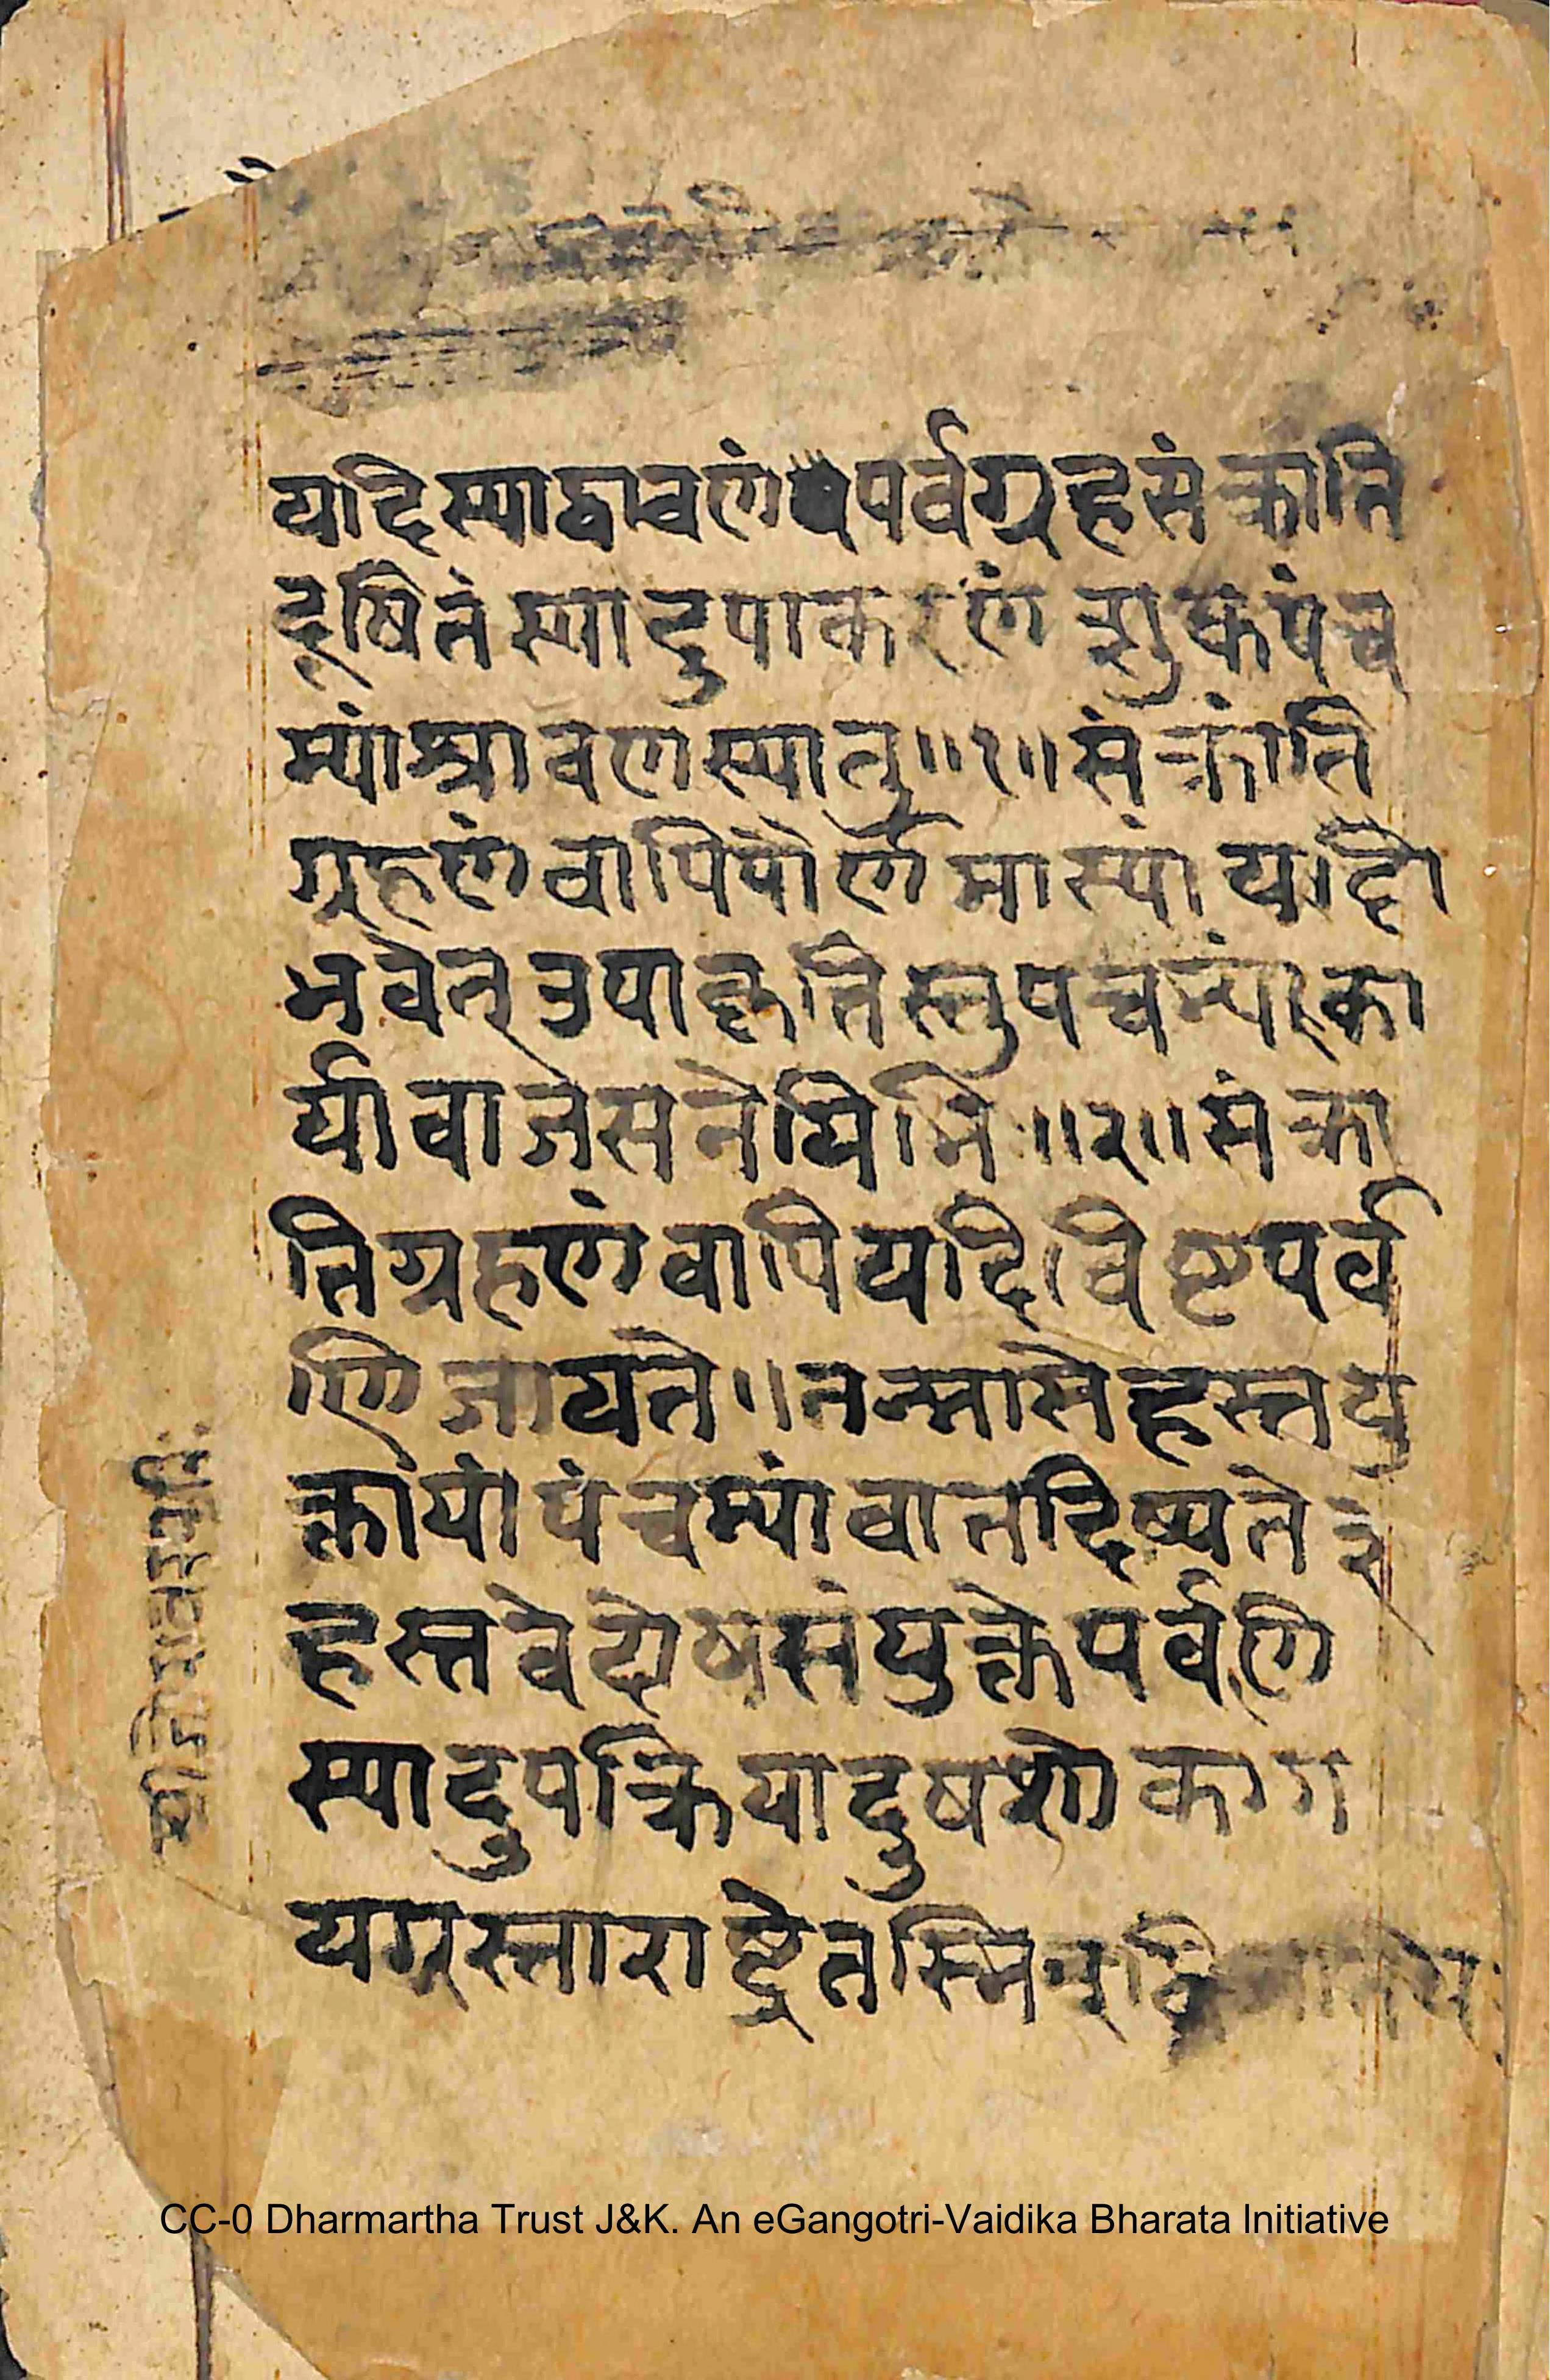 यदिस्याद्वावणं पर्वग्रहसंक्राति
दूषितं स्यादुपाकरणं शुक्लपंच
म्यांश्रावणस्यातु॥१॥संक्रांति
ग्रहणंवापिपौर्णमास्यां यदि
भवेत् उपाकृतिस्तुपञ्चम्यां का
र्यावाजसनेयिभिः॥२॥संक्रा
तिग्रहणंवापियदि पर्व
णि जायते॥तन्मासेहस्तयु
क्तायांपंचम्यांवातदिष्यते ३
हस्तवेदोषसंयुक्तेपर्वणि
स्यादुपक्रियादुषशोक
यग्रस्ताराष्ट्रेतस्मिन्
CC-0 Dharmartha Trust J&K. An eGangotri-Vaidika Bharata Initiative